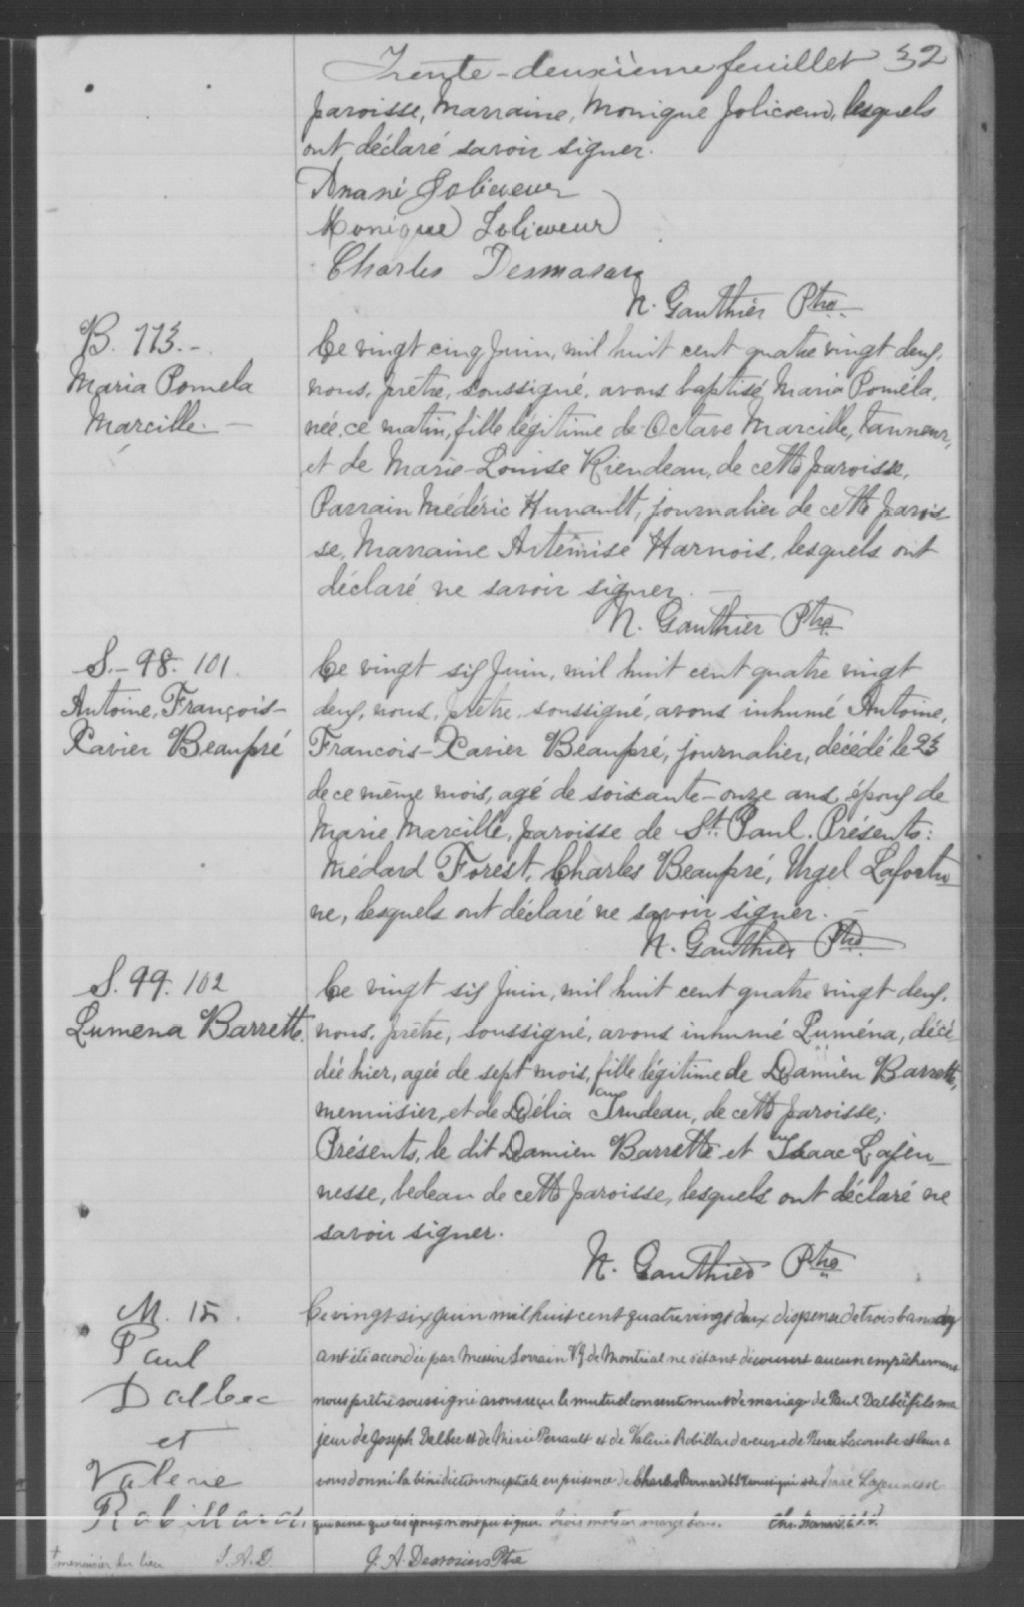 Trente-deuxième feuillet 32
paroisse, Marraine, Monique Jolicoeur, lesquels
ont déclaré savoir signer.
Anani Jolicoeur
Monique Jolicoeur
Charles Desmarais
N. Gauthier Ptre
B. 113.-
Maria Pomela
Marcille. -
Ce vingt cinq Juin, mil huit cent quatre vingt deux,
nous, prêtre, soussigné, avons baptisé Maria Poméla,
née, ce matin, fille légitime de Octave Marcille, tanneur,
et de Marie-Louise Riendeau, de cette paroisse,
Parrain Médéric Hunault, journalier de cette parois
se, Marraine Artémise Harnois, lesquels ont
déclaré ne savoir signer. -
N. Gauthier Ptre
S.- 98. 101.
Antoine, François-
Xavier Beaupré
Ce vingt six Juin, mil huit cent quatre vingt
deux, nous, prêtre, soussigné, avons inhumé Antoine,
Francois-Xavier Beaupré, journalier, décédé le 23
de ce même mois, agé de soixante-onze ans, époux de
Marie Marcille, paroisse de St. Paul. Présents:
Médard Forest, Charles Beaupré, Urgel Lafortu
ne, lesquels ont déclaré ne savoir signer. -
N. Gauthier Ptre
S. 99. 102
Lumena Barrette.
Ce vingt six Juin, mil huit cent quatre vingt deux,
nous, prêtre, soussigné, avons inhumé Luména, décé
dée hier, agée de sept mois, fille légitime de Damien Barrette,
menuisier, et de Délia Trudeau, de cette paroisse;
Présents, le dit Damien Barrette et Isaac Lajeu-
nesse, bedeau de cette paroisse, lesquels ont déclaré ne
savoir signer.
N. Gauthier Ptre
M. 15.
Paul
Dalbec
et
Valerie
Robillard.
Ce vingt six Juin mil huit cent quatre vingt deux dispense de trois bans
ant été accordée par Messire Lorrain V.G de Montréal ne s'étant découvert aucun empêchement
nous prêtre soussigné avons reçu le mutuel consentement de mariage de Paul Dalbec fils ma
jeur de Joseph Dalbec et de Marie Perrault et de Valérie Robillard veuve de Lacombe et leur a
vons donné la bénédiction nuptiale en présence de Charles Bernard soussigné et de Isaac Lajeunesse
que les époux n'ont pu signer. Trois mots en marge bons.
+ menuisier du lieu J. A. D.
J. A. Desrosiers Ptre